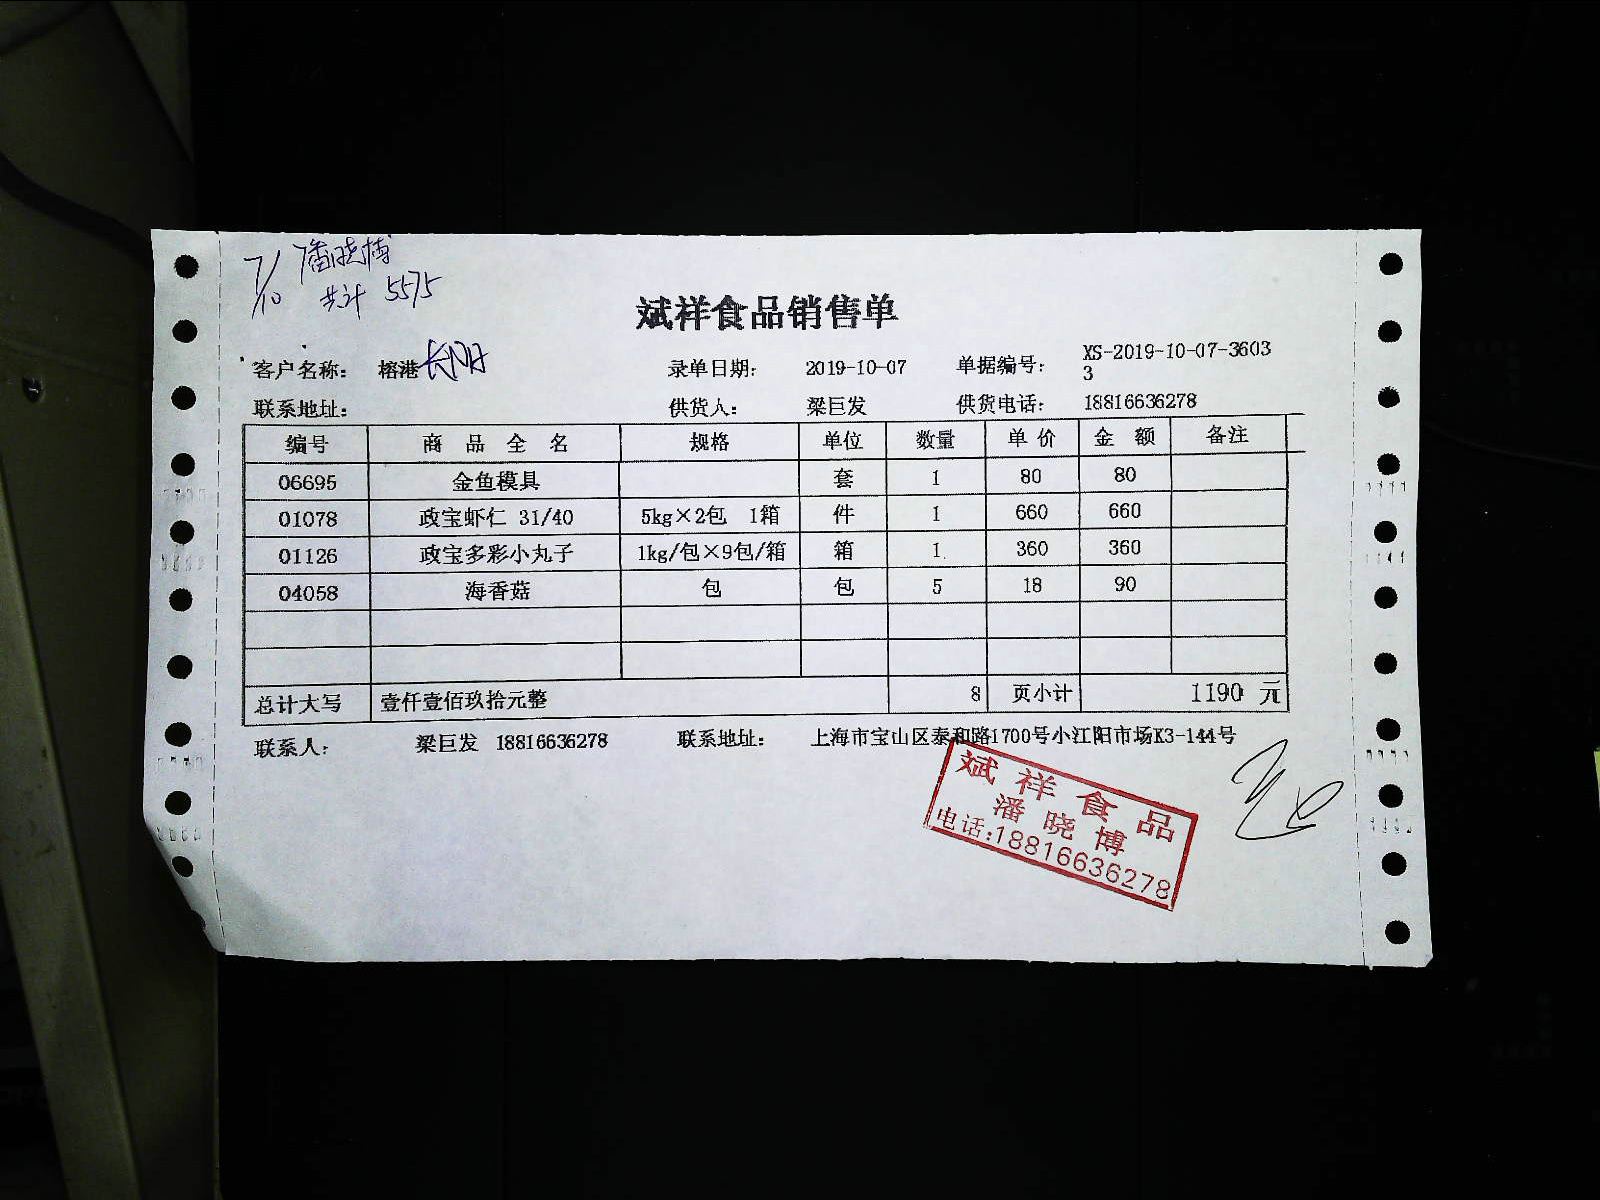 7/10 潘晓博
共计 5575
斌祥食品销售单
客户名称： 榕港 录单日期： 2019-10-07 单据编号： XS-2019-10-07-3603
3
联系地址： 供货人： 梁巨发 供货电话： 18816636278
编号 商 品 全 名 规格 单位 数量 单 价 金 额 备注
06695 金鱼模具 套 1 80 80
01078 政宝虾仁 31/40 5kg×2包 1箱 件 1 660 660
01126 政宝多彩小丸子 1kg/包×9包/箱 箱 1 360 360
04058 海香菇 包 包 5 18 90
总计大写 壹仟壹佰玖拾元整 8 页小计 1190 元
联系人： 梁巨发 18816636278 联系地址： 上海市宝山区泰和路1700号小江阳市场K3-144号
斌祥食品
潘晓博
电话:18816636278